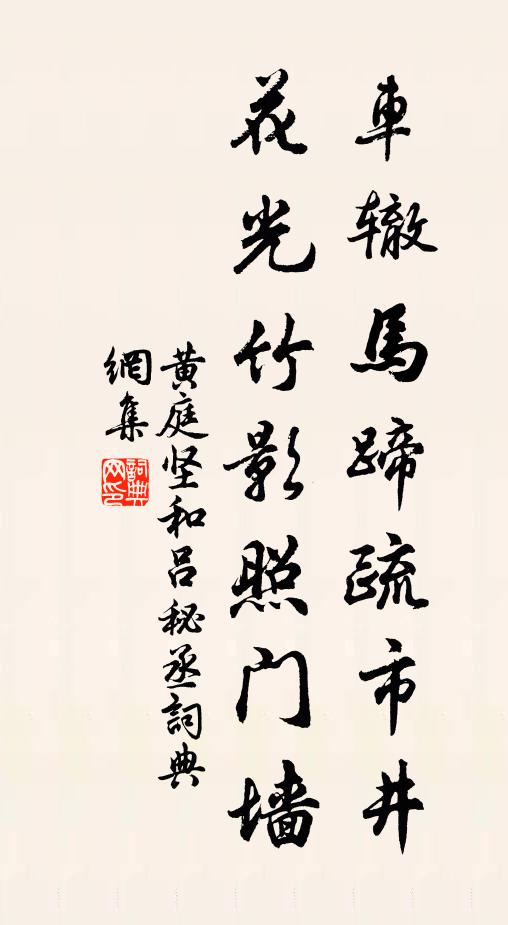 車辙馬蹄疏市井
花光竹影照门墙
黄庭坚和吕秘丞詞典
網集
詞典網印